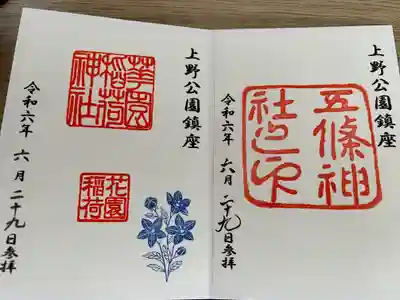 上野公園鎮座
五條神
社之印
令和六年 六月二十九日参拝
上野公園鎮座
花園
稲荷
神社
花園
稲荷
令和六年 六月二十九日参拝